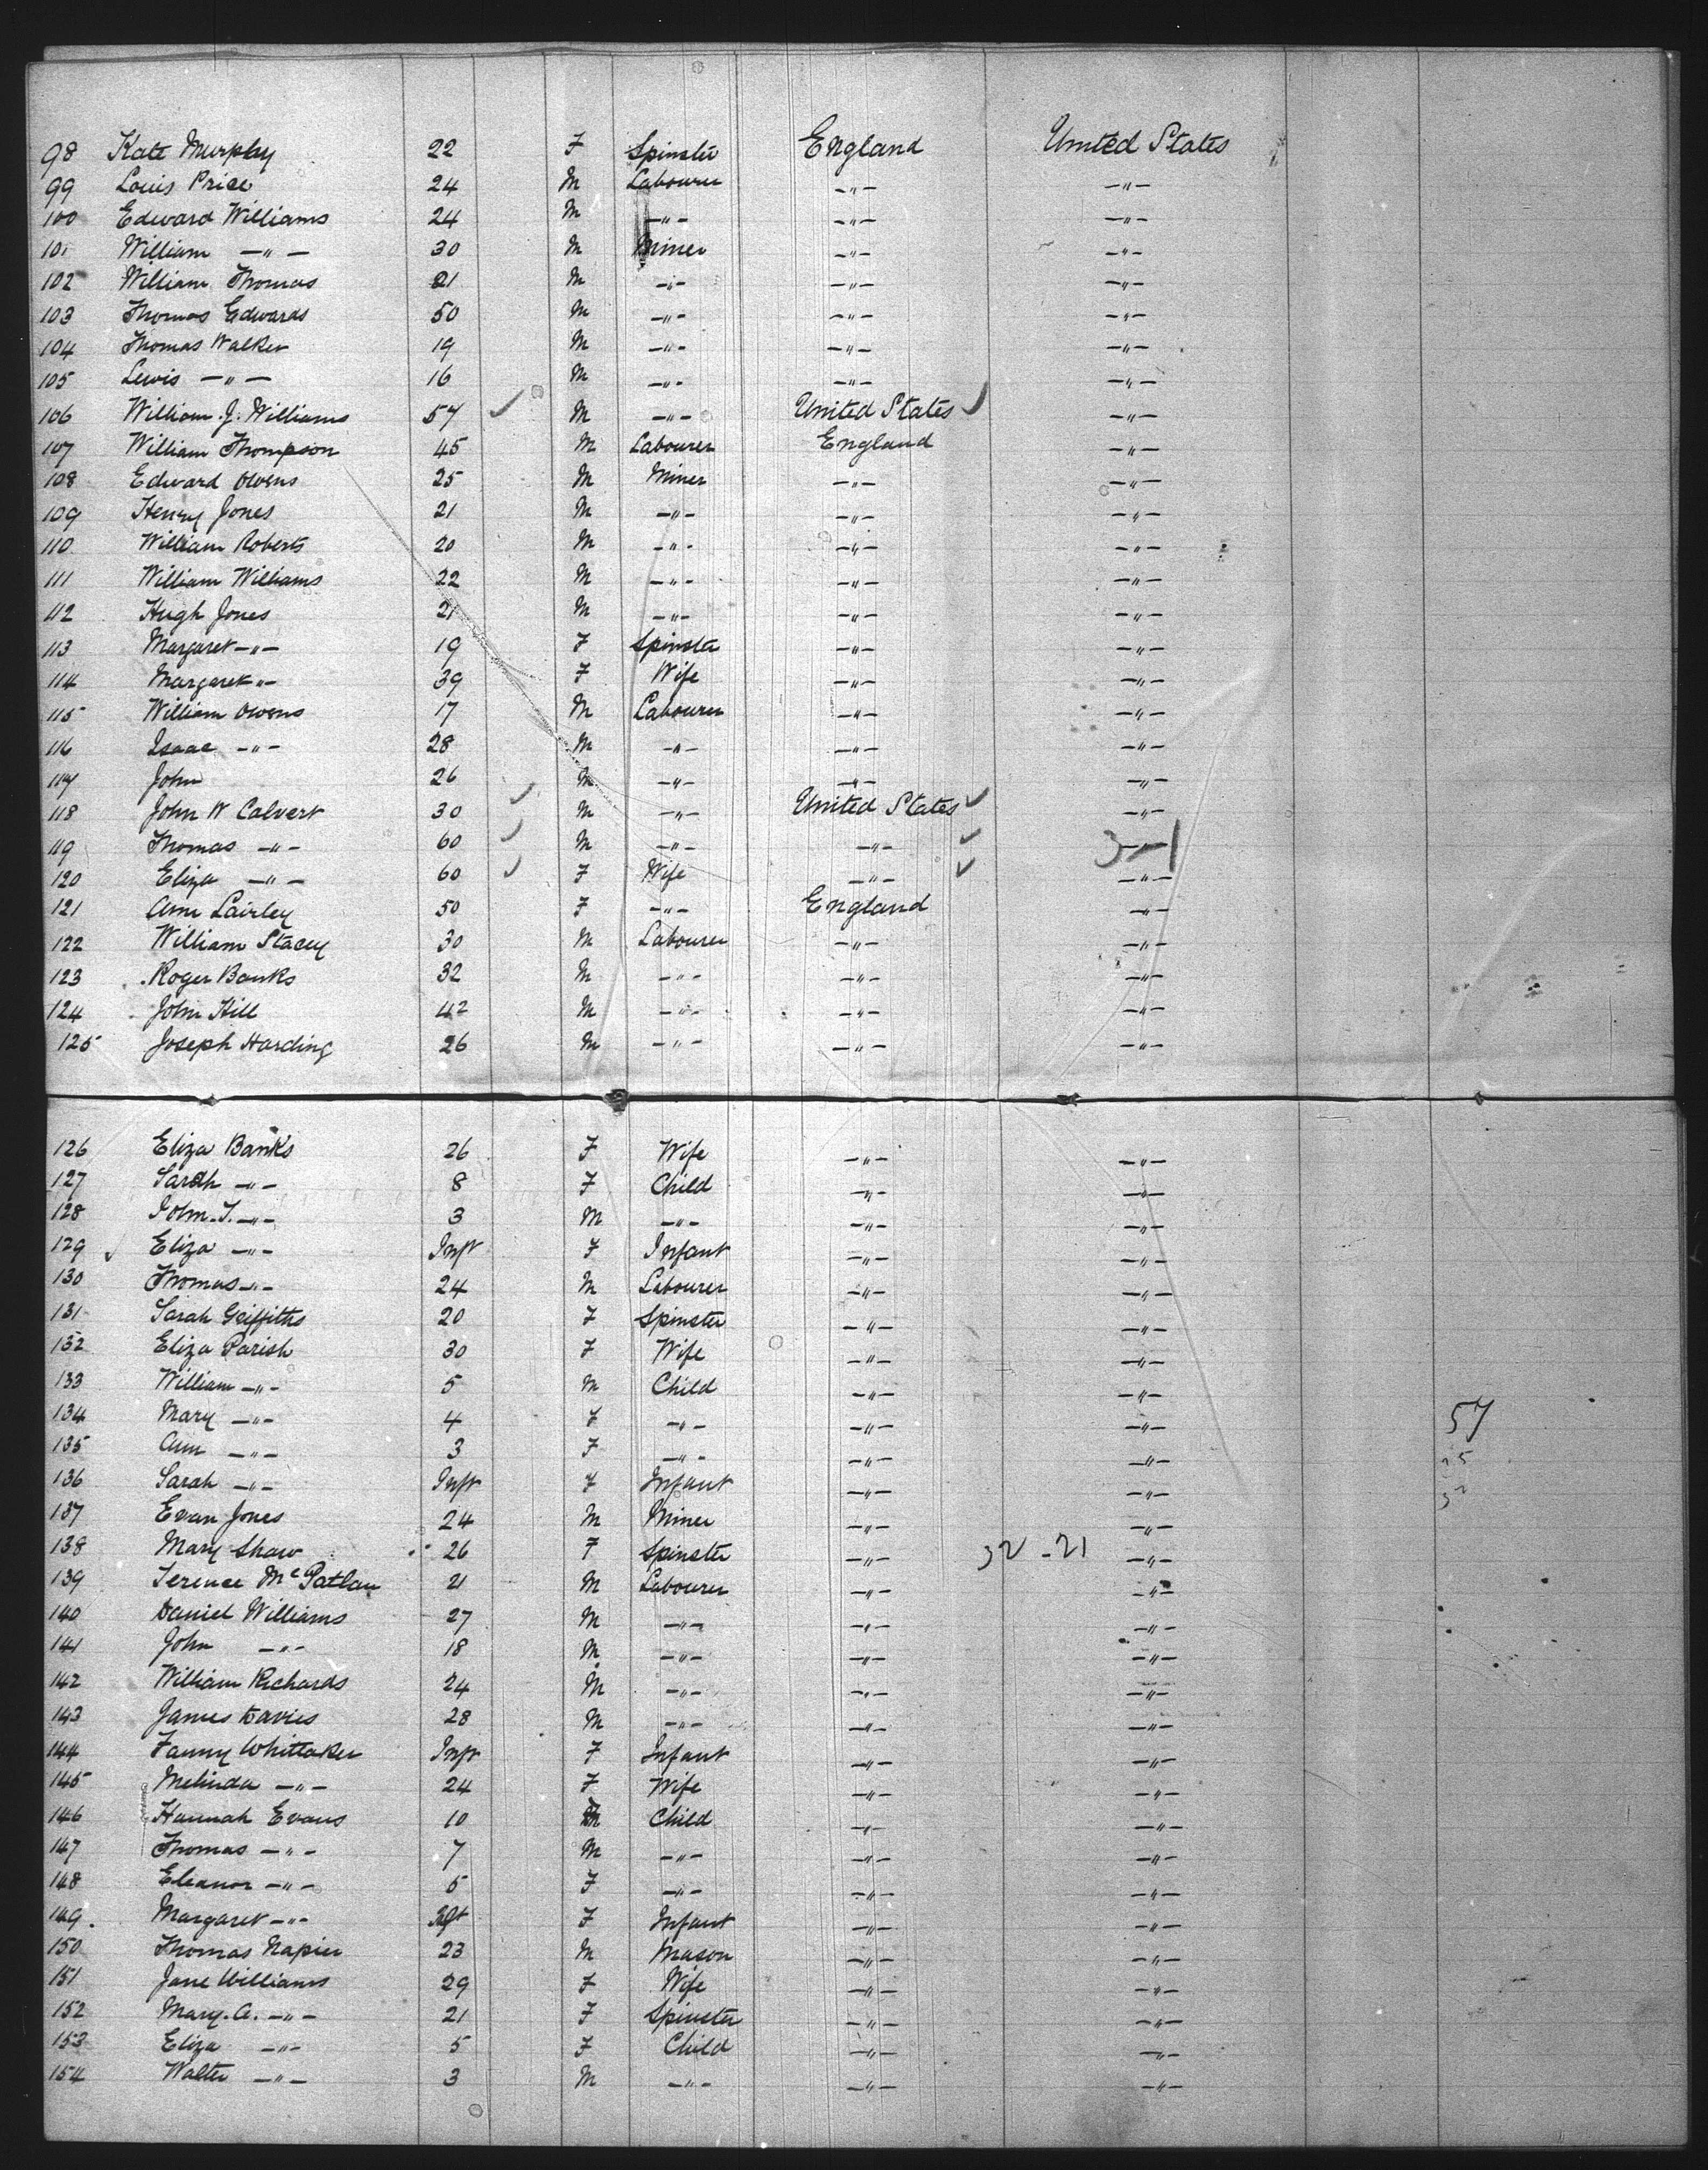 98 Kate Murphy 22 F Spinster England United States
99 Louis Price 24 M Labourer -"- -"-
100 Edward Williams 24 M -"- -"- -"-
101 William -"- 30 M Miner -"- -"-
102 William Thomas 21 M -"- -"- -"-
103 Thomas Edwards 50 M -"- -"- -"-
104 Thomas Walker 19 M -"- -"- -"-
105 Lewis -"- 16 M -"- -"- -"-
106 William J. Williams 57 ✓ M -"- United States ✓ -"-
107 William Thompson 45 M Labourer England -"-
108 Edward Owens 25 M Miner -"- -"-
109 Henry Jones 21 M -"- -"- -"-
110 William Roberts 20 M -"- -"- -"-
111 William Williams 22 M -"- -"- -"-
112 Hugh Jones 21 M -"- -"- -"-
113 Margaret -"- 19 F Spinster -"- -"-
114 Margaret -"- 39 F Wife -"- -"-
115 William Owens 17 M Labourer -"- -"-
116 Isaac -"- 28 M -"- -"- -"-
117 John 26 M -"- -"- -"-
118 John W Calvert 30 ✓ M -"- United States ✓ -"-
119 Thomas -"- 60 ✓ M -"- -"- ✓ 3-1
120 Eliza -"- 60 ✓ F Wife -"- ✓ -"-
121 Ann Lairley 50 F -"- England -"-
122 William Stacey 30 M Labourer -"- -"-
123 Roger Banks 32 M -"- -"- -"-
124 John Hill 42 M -"- -"- -"-
125 Joseph Harding 26 M -"- -"- -"-
126 Eliza Banks 26 F Wife -"- -"-
127 Sarah -"- 8 F Child -"- -"-
128 John. T. -"- 3 M -"- -"- -"-
129 ✓ Eliza -"- Inft F Infant -"- -"-
130 Thomas -"- 24 M Labourer -"- -"-
131 Sarah Griffiths 20 F Spinster -"- -"-
132 Eliza Parish 30 F Wife -"- -"-
133 William -"- 5 M Child -"- -"-
134 Mary -"- 4 F -"- -"- -"- 57
135 Ann -"- 3 F -"- -"- -"-
136 Sarah -"- Inft F Infant -"- -"-
137 Evan Jones 24 M Miner -"- -"-
138 Mary Shaw 26 F Spinster -"- 32-21 -"-
139 Terence McPatlan 21 M Labourer -"- -"-
140 Daniel Williams 27 M -"- -"- -"-
141 John -"- 18 M -"- -"- -"-
142 William Richards 24 M -"- -"- -"-
143 James Davies 28 M -"- -"- -"-
144 Fanny Whittaker Inft F Infant -"- -"-
145 Melinda -"- 24 F Wife -"- -"-
146 Hannah Evans 10 Child -"- -"-
147 Thomas -"- 7 M -"- -"- -"-
148 Eleanor -"- 5 F -"- -"- -"-
149 Margaret -"- F Infant -"- -"-
150 Thomas Napier 23 M Mason -"- -"-
151 Jane Williams 29 F Wife -"- -"-
152 Mary. A. -"- 21 F Spinster -"- -"-
153 Eliza -"- 5 F Child -"- -"-
154 Walter -"- 3 M -"- -"- -"-